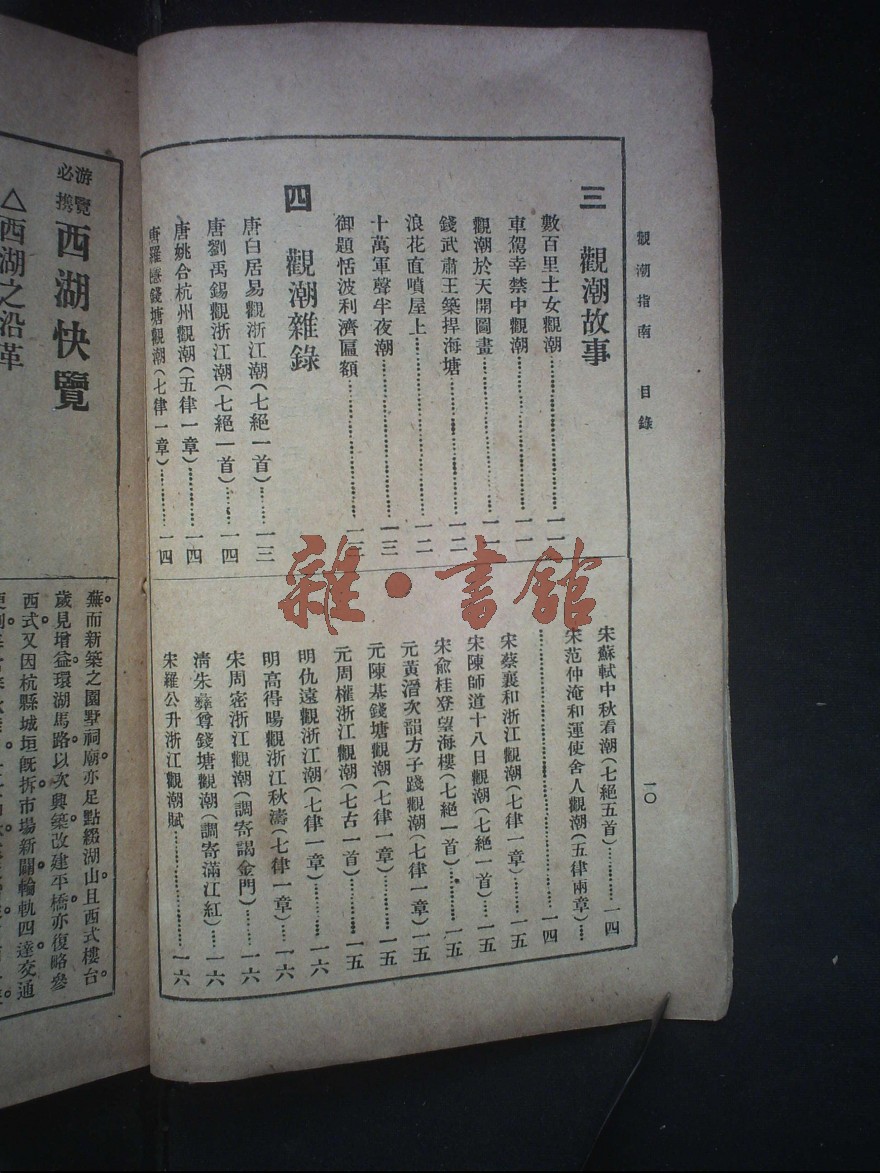 觀潮指南 目錄
一〇
三 觀潮故事
數百里士女觀潮……一一
車駕幸禁中觀潮……一一
觀潮於天開圖畫……一一
錢武肅王築捍海塘……一二
浪花直噴屋上……一二
十萬軍聲半夜潮……一三
御題恬波利濟匾額……
四 觀潮雜錄
唐白居易觀浙江潮(七絕一首)……一三
唐劉禹錫觀浙江潮(七絕一首)……一四
唐姚合杭州觀潮(五律一章)……一四
唐羅隱錢塘觀潮(七律一章)……一四
宋蘇軾中秋看潮(七絕五首)……一四
宋范仲淹和運使舍人觀潮(五律兩章)…
……一四
宋蔡襄和浙江觀潮(七律一章)……一五
宋陳師道十八日觀潮(七絕一首)……一五
宋俞桂登望海樓(七絕一首)……一五
元黃溍次韻方子踐觀潮(七律一章)一五
元陳基錢塘觀潮(七律一章)……一五
元周權浙江觀潮(七古一首)……一五
明仇遠觀浙江潮(七律一章)……一六
明高得暘觀浙江秋濤(七律一章)…一六
宋周密浙江觀潮(調寄謁金門)……一六
清朱彝尊錢塘觀潮(調寄滿江紅)…一六
宋羅公升浙江觀潮賦……一六
雜·書館
游覽必携 西湖快覽
△西湖之沿革
蕪而新築之園墅祠廟亦足點綴湖山且西式樓台。
歲見增益環湖馬路以次興築改建平橋亦復略參
西式又因杭縣城垣既拆市場新闢輪軌四達交通